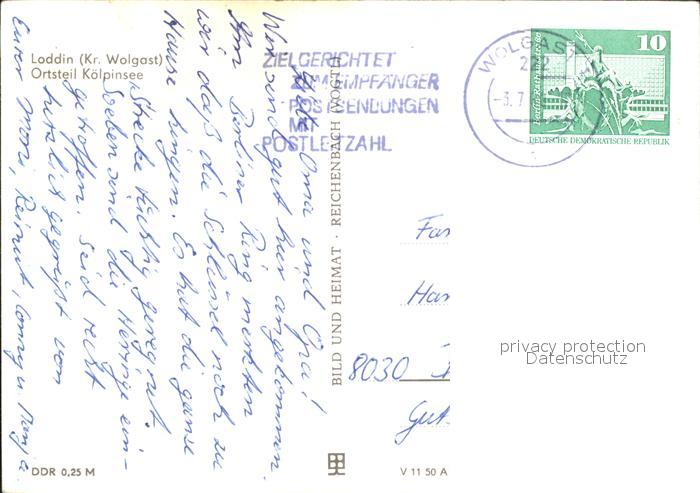 Loddin (Kr. Wolgast)
Ortsteil Kölpinsee
ZIELGERICHTET
ZUM EMPFÄNGER
POSTSENDUNGEN
MIT
POSTLEITZAHL
WOLGAST
222
-3.7
10
Berlin-Rathausstraße
DEUTSCHE DEMOKRATISCHE REPUBLIK
Oma und Opa!
Wir sind gut hier angekommen.
Am Berliner Ring merkten
wir daß die Schlüssel noch zu
Hause hingen. Es hat die ganze
Strecke tüchtig geregnet.
Soeben sind die Heringe ein-
getroffen. Seid recht
herzlich gegrüßt von
Eurer Moni, Reinert, u.
BILD UND HEIMAT · REICHENBACH (VOGTL)
8030
privacy protection
Datenschutz
DDR 0,25 M
V 11 50 A